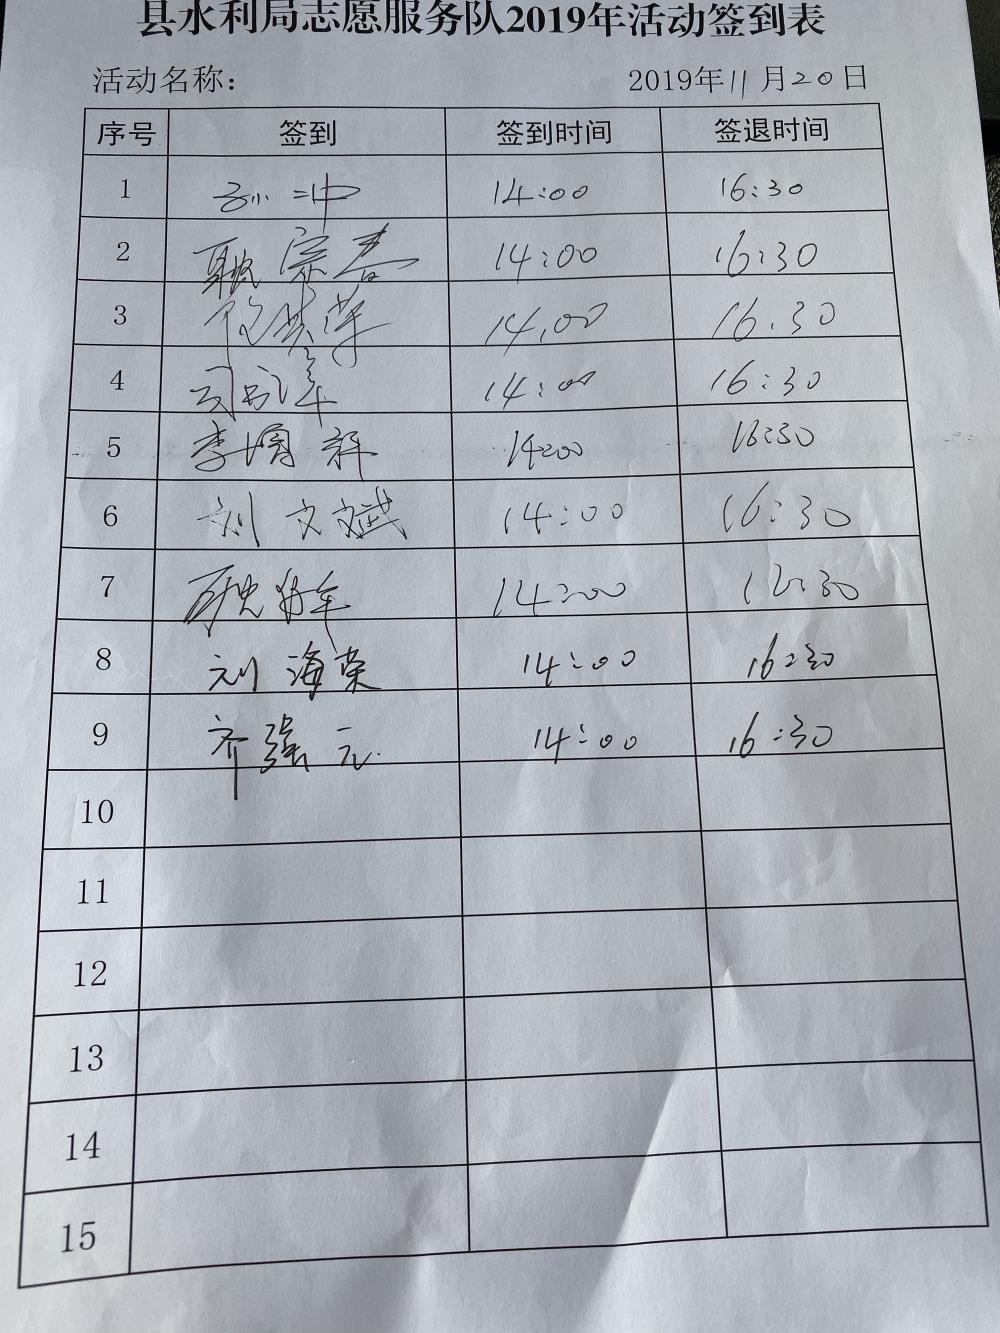 县水利局志愿服务队2019年活动签到表
活动名称： 2019年11月20日
序号 签到 签到时间 签退时间
1 孙二冲 14:00 16:30
2 14:00 16:30
3 14:00 16:30
4 14:00 16:30
5 李増祥 14:00 16:30
6 刘文斌 14:00 16:30
7 14:00 16:30
8 刘海荣 14:00 16:30
9 齐强元 14:00 16:30
10
11
12
13
14
15